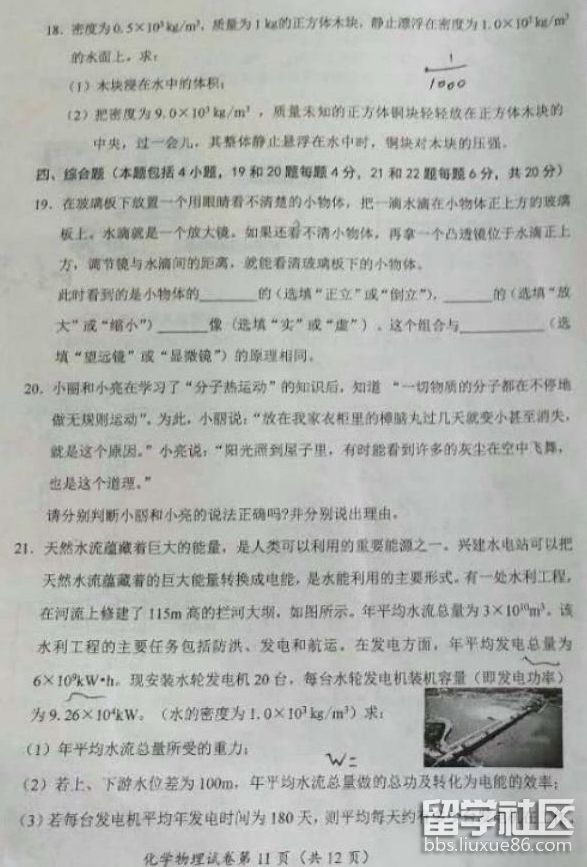 18. 密度为0.5×10³kg/m³，质量为1kg的正方体木块，静止漂浮在密度为1.0×10³kg/m³
的水面上。求：
(1) 木块浸在水中的体积；
1
1000
(2) 把密度为9.0×10³kg/m³，质量未知的正方体铜块轻轻放在正方体木块的
中央，过一会儿，其整体静止悬浮在水中时，铜块对木块的压强。
四、综合题（本题包括4小题，19和20题每题4分，21和22题每题6分，共20分）
19. 在玻璃板下放置一个用眼睛看不清楚的小物体，把一滴水滴在小物体正上方的玻璃
板上，水滴就是一个放大镜。如果还看不清小物体，再拿一个凸透镜位于水滴正上
方，调节镜与水滴间的距离，就能看清玻璃板下的小物体。
此时看到的是小物体的______的（选填“正立”或“倒立”），______的（选填“放
大”或“缩小”）______像（选填“实”或“虚”）。这个组合与______（选
填“望远镜”或“显微镜”）的原理相同。
20. 小丽和小亮在学习了“分子热运动”的知识后，知道“一切物质的分子都在不停地
做无规则运动”。为此，小丽说：“放在我家衣柜里的樟脑丸过几天就变小甚至消失，
就是这个原因。”小亮说：“阳光照到屋子里，有时能看到许多的灰尘在空中飞舞，
也是这个道理。”
请分别判断小丽和小亮的说法正确吗?并分别说出理由。
21. 天然水流蕴藏着巨大的能量，是人类可以利用的重要能源之一。兴建水电站可以把
天然水流蕴藏着的巨大能量转换成电能，是水能利用的主要形式。有一处水利工程，
在河流上修建了115m高的拦河大坝，如图所示。年平均水流总量为3×10¹⁰m³。该
水利工程的主要任务包括防洪、发电和航运。在发电方面，年平均发电总量为
6×10⁹kW•h。现安装水轮发电机20台，每台水轮发电机装机容量（即发电功率）
为9.26×10⁴kW。（水的密度为1.0×10³kg/m³）求：
(1) 年平均水流总量所受的重力；
W=
(2) 若上、下游水位差为100m，年平均水流总量做的总功及转化为电能的效率；
(3) 若每台发电机平均年发电时间为180天，则平均每天约有
留学社区
bbs.liuxue86.com
化学物理试卷第11页（共12页）